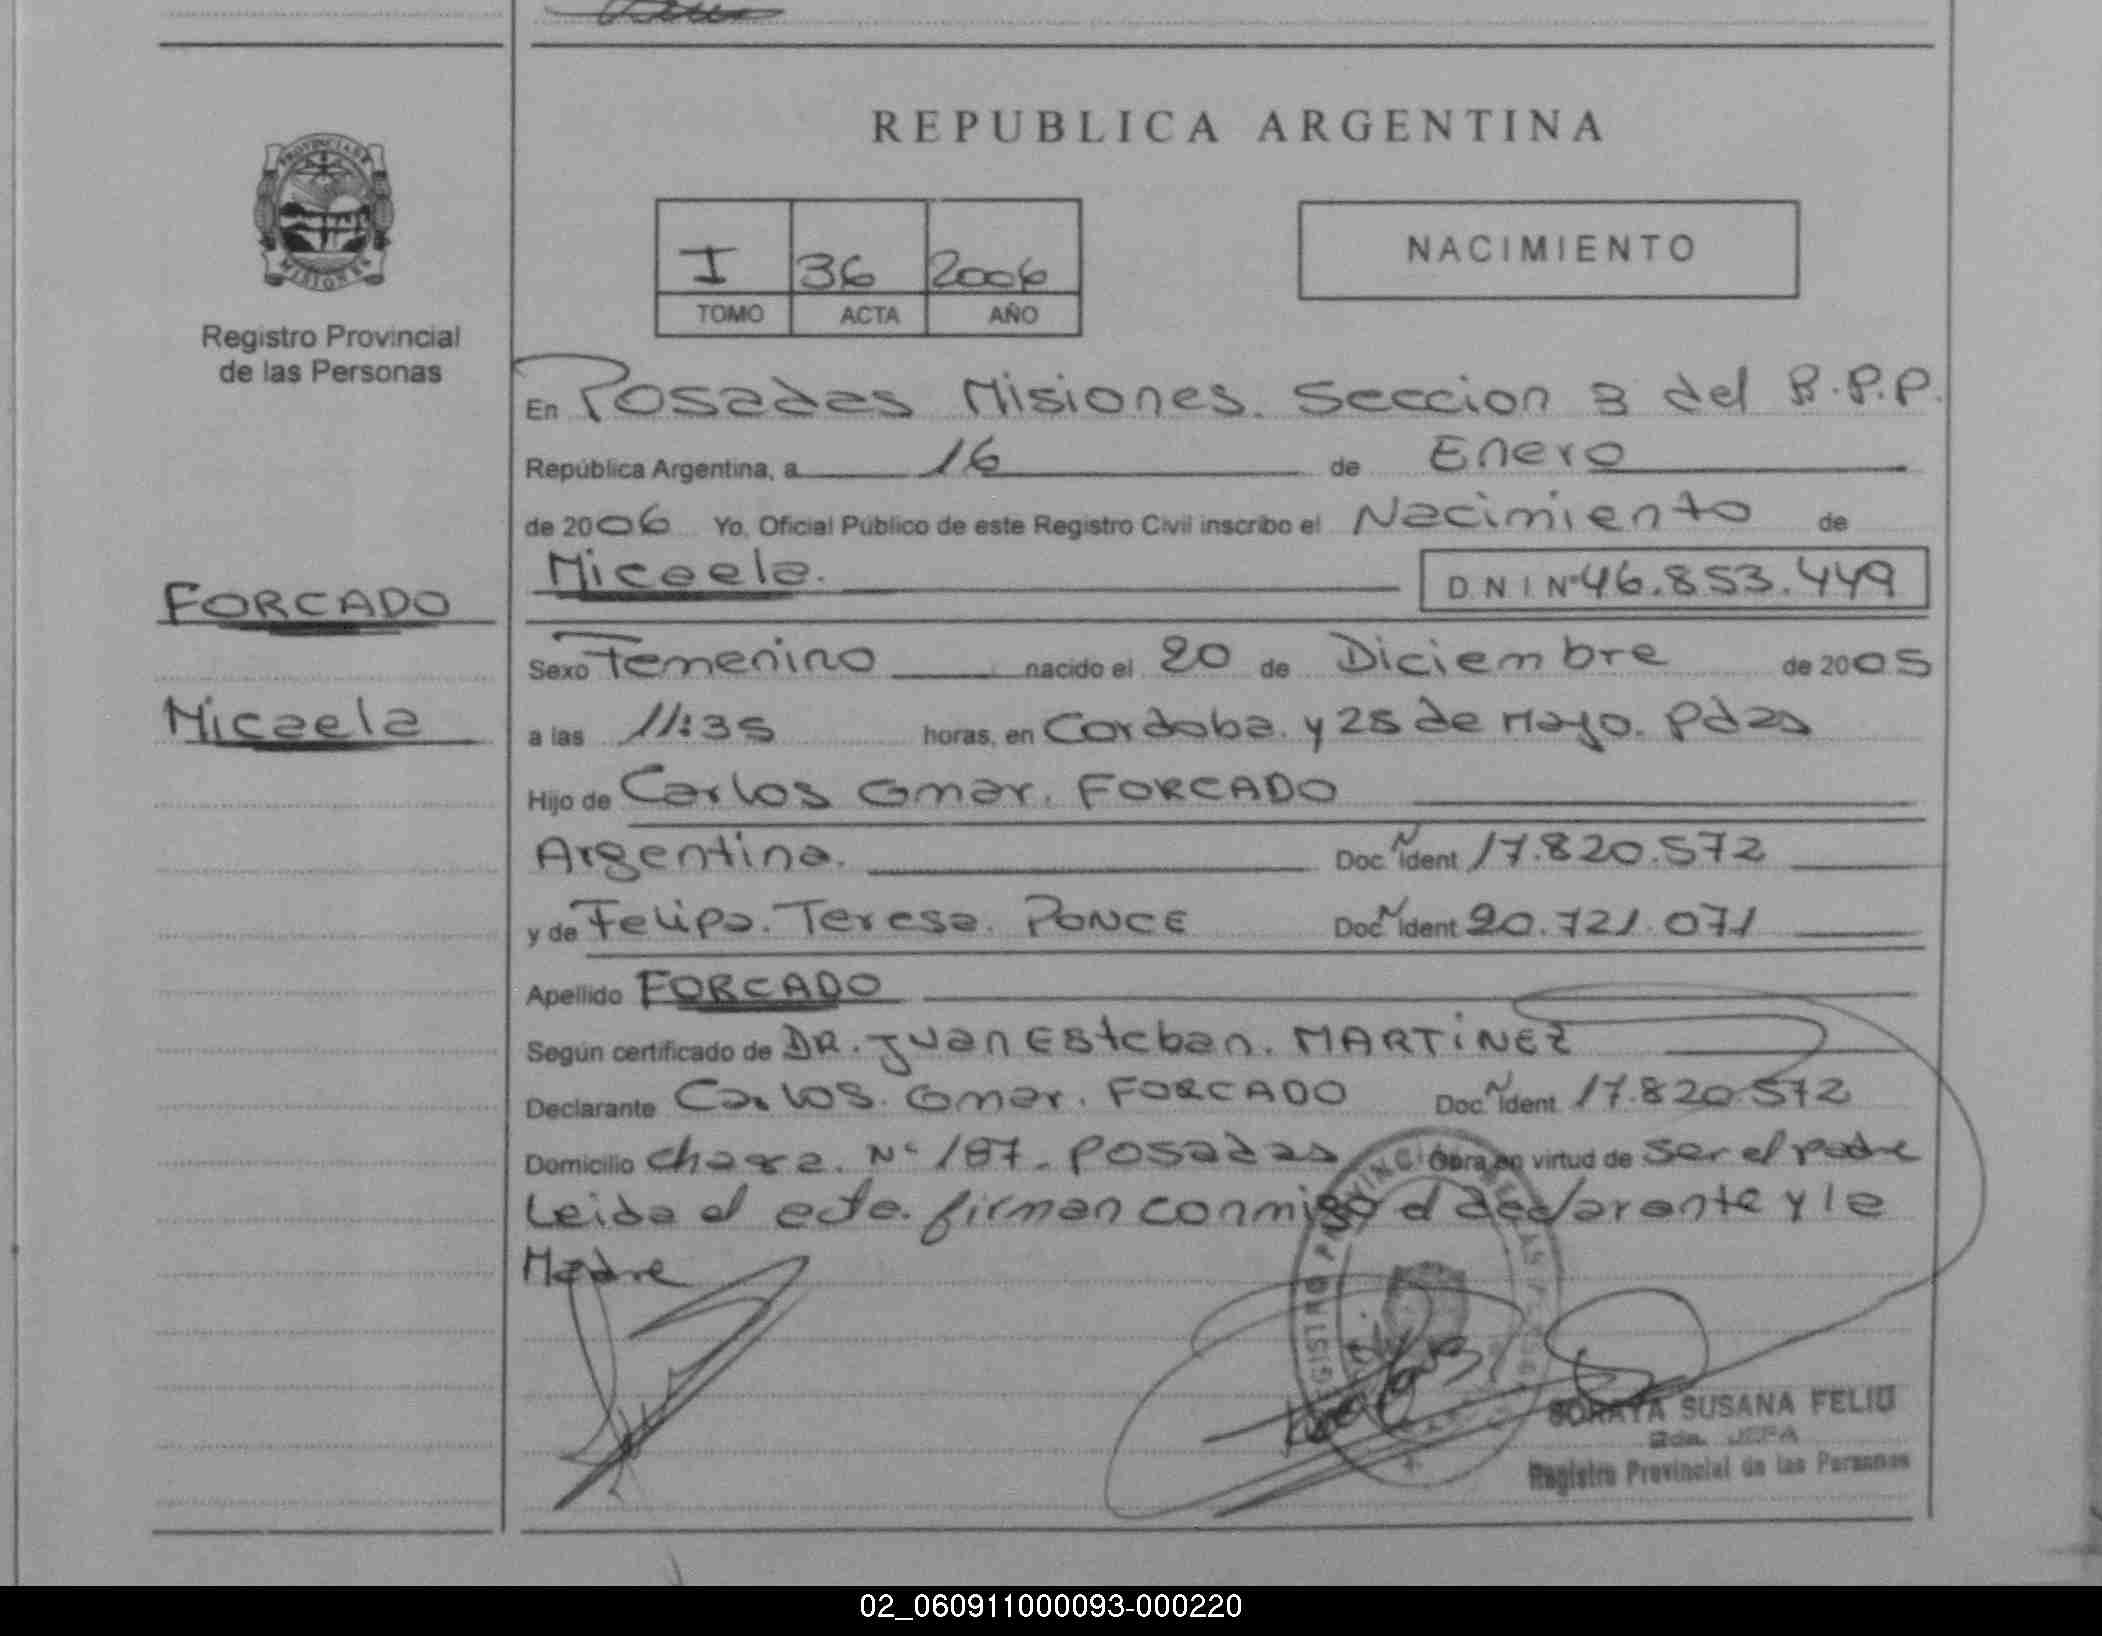 REPUBLICA ARGENTINA
PROVINCIA DE
MISIONES
Registro Provincial
de las Personas
I 36 2006
TOMO ACTA AÑO
NACIMIENTO
En Posadas Misiones. Seccion 3 del R.P.P.
República Argentina, a 16 de Enero
de 2006 Yo, Oficial Público de este Registro Civil inscribo el Nacimiento de
Micaela. D.N.I. Nº 46.853.449
FORCADO
Micaela
Sexo Femenino nacido el 20 de Diciembre de 2005
a las 11:35 horas, en Cordoba. y 25 de Mayo. Pdas
Hijo de Carlos Omar. FORCADO
Argentina. Doc. Ident 17.820.572
y de Felipa. Teresa. PONCE Doc. Ident 20.721.071
Apellido FORCADO
Según certificado de DR. Juan Esteban. MARTINEZ
Declarante Carlos. Omar. FORCADO Doc. Ident. 17.820.572
Domicilio chacra. Nº 187. Posadas Obra en virtud de ser el padre
Leida el acta. firman conmigo el declarante y la
Madre
SORAYA SUSANA FELIU
2da. JEFA
Registro Provincial de las Personas
02_060911000093-000220